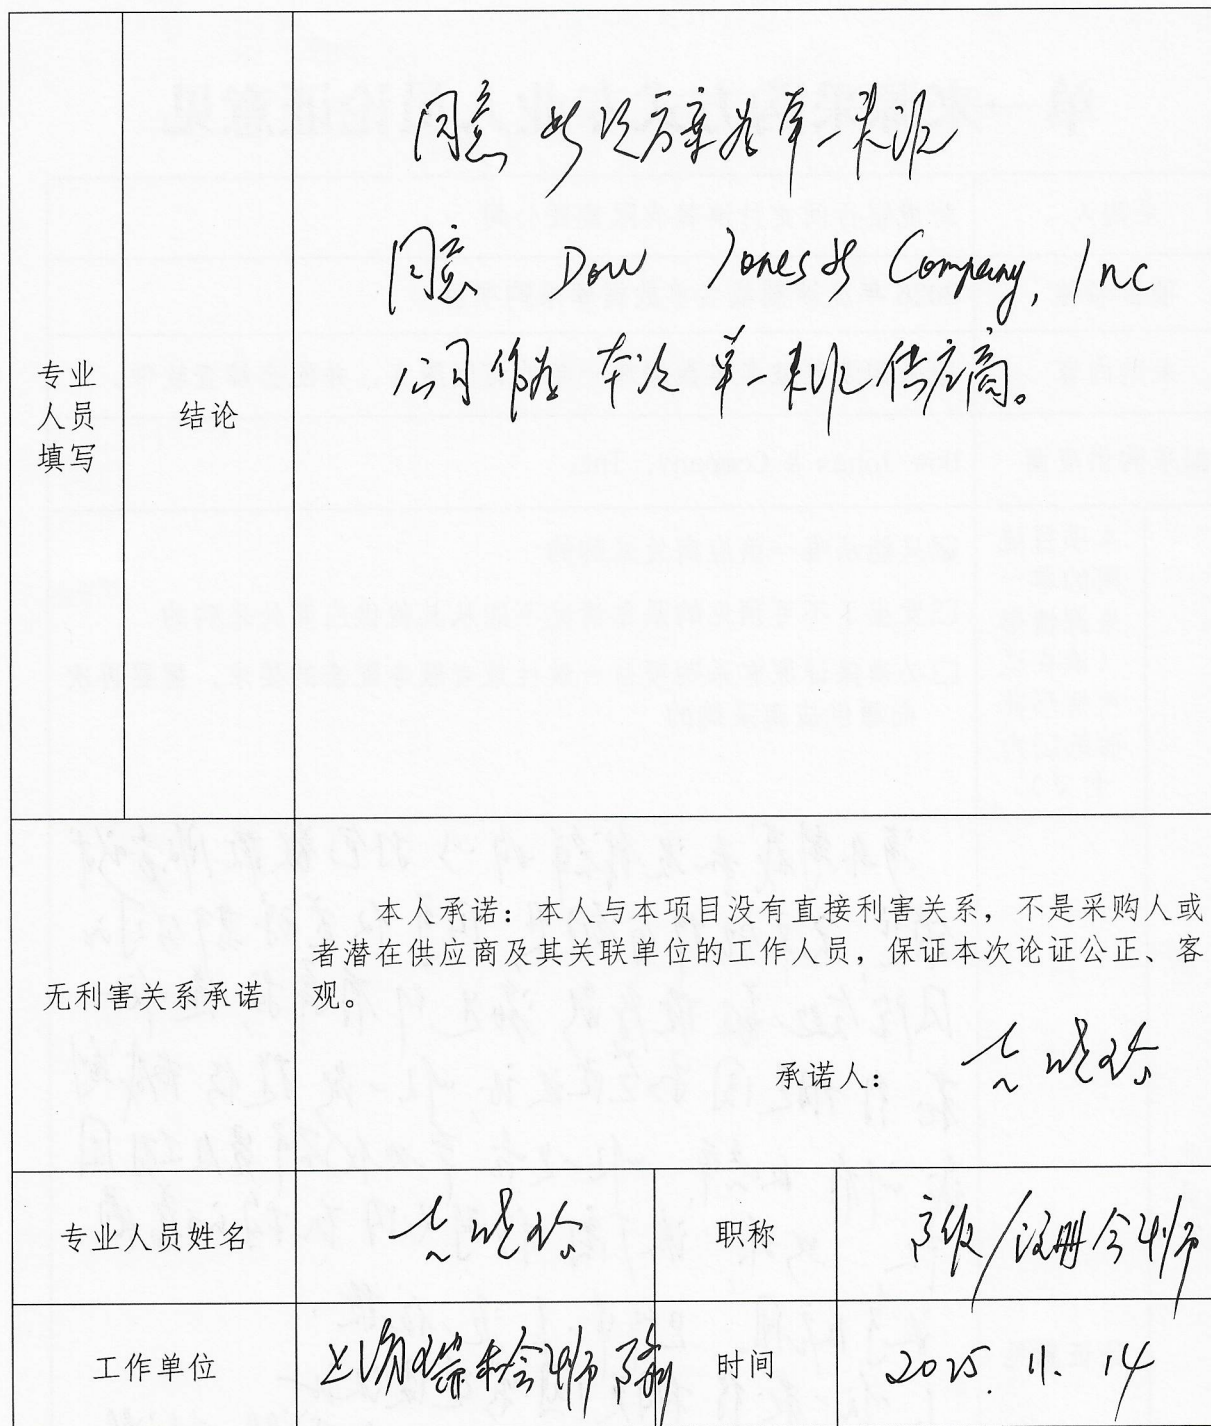 同意此次方案为单一来源
同意 Dow Jones & Company, Inc
公司作为本次单一来源供应商。
专业
人员
填写
结论
无利害关系承诺
本人承诺：本人与本项目没有直接利害关系，不是采购人或
者潜在供应商及其关联单位的工作人员，保证本次论证公正、客
观。
承诺人：
专业人员姓名
职称
高级/注册会计师
工作单位
上海
会计师
时间
2025. 11. 14